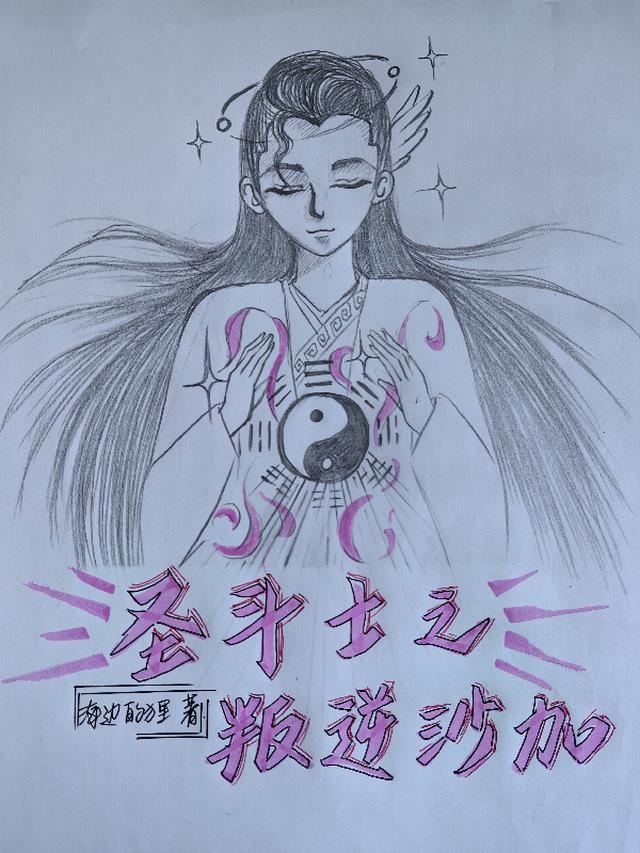 圣斗士之
叛逆沙加
海边的方里 著